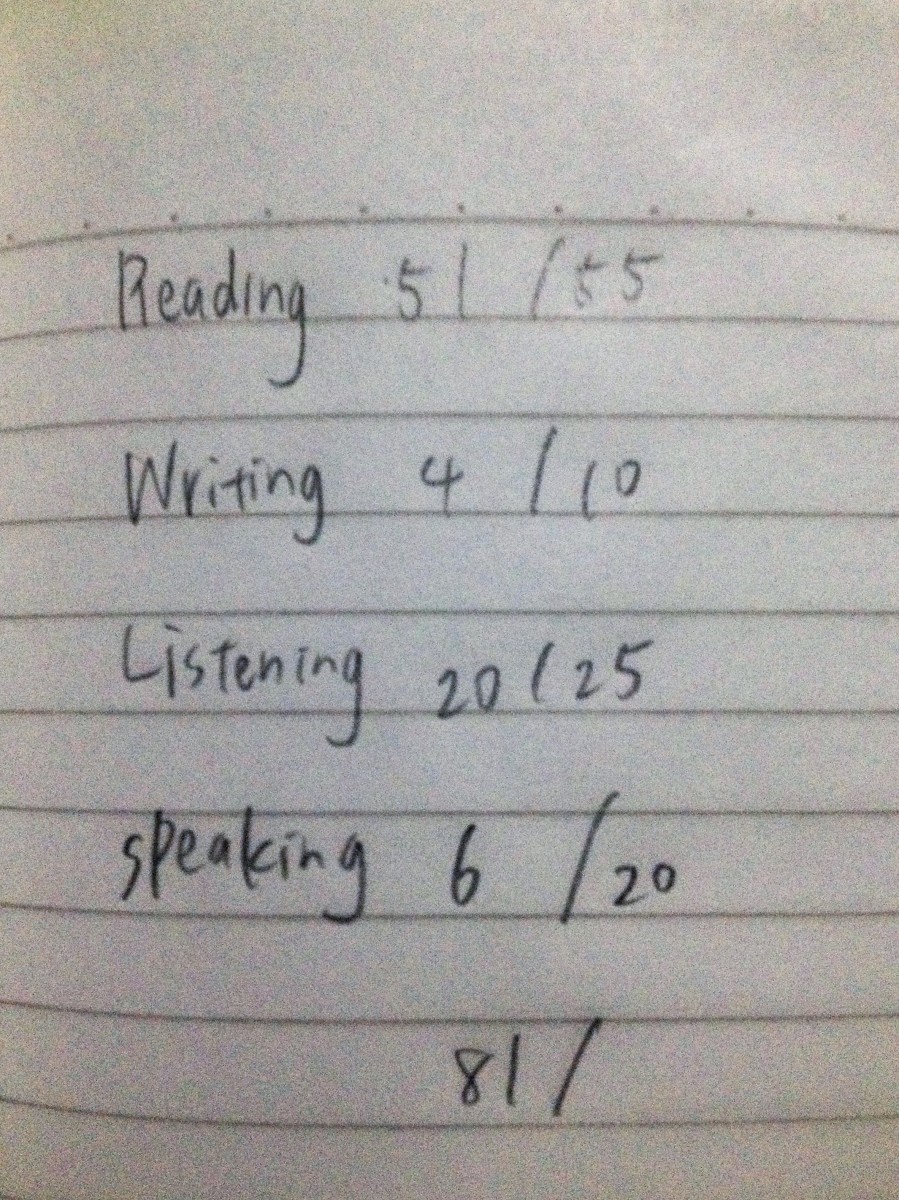 Reading 51 /55
Writing 4 /10
Listening 20/25
speaking 6 /20
81/